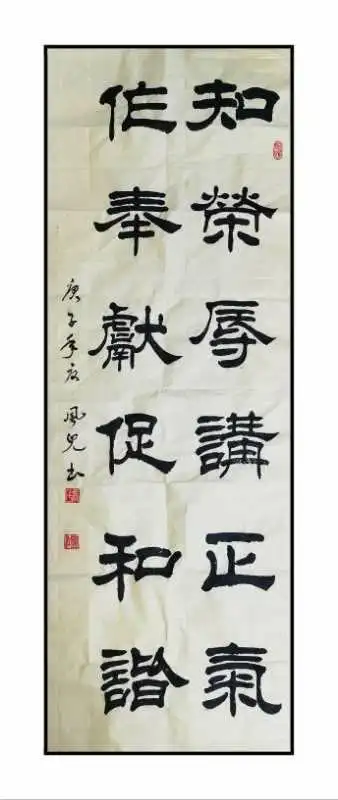 知榮辱講正氣
作奉獻促和諧
庚子年夏風兒书